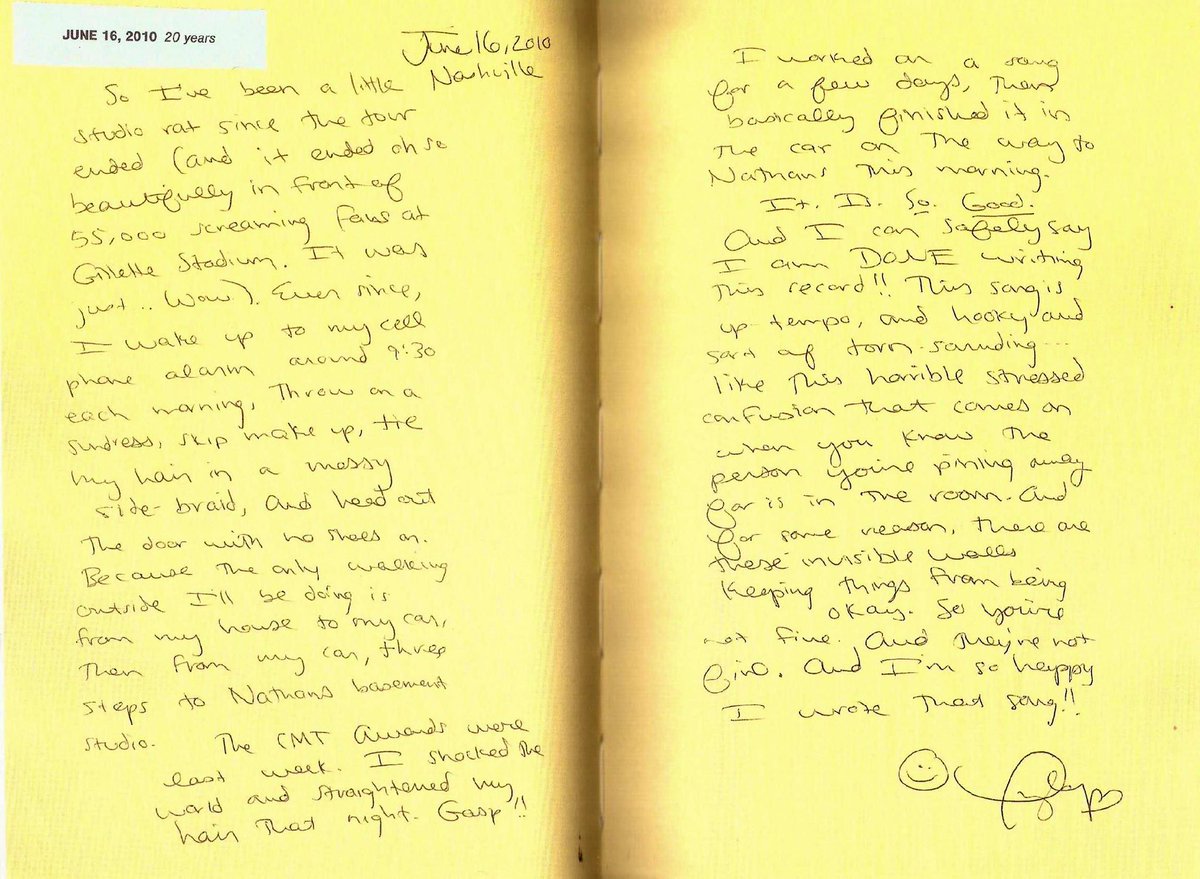 JUNE 16, 2010 20 years
June 16, 2010
Nashville
So I've been a little
studio rat since the tour
ended (and it ended oh so
beautifully in front of
55,000 screaming fans at
Gillette Stadium. It was
just.. Wow.). Ever since,
I wake up to my cell
phone alarm around 9:30
each morning, throw on a
sundress, skip make up, tie
my hair in a messy
side-braid, and head out
the door with no shoes on.
Because the only walking
outside I'll be doing is
from my house to my car,
then from my car, three
steps to Nathans basement
studio.
The CMT Awards were
last week. I shocked the
world and straightened my
hair that night. Gasp!!
I worked on a song
for a few days, then
basically finished it in
the car on the way to
Nathans this morning.
It. Is. So. Good.
And I can safely say
I am DONE writing
this record!! This song is
up tempo, and hooky and
sort of torn-sounding...
like this horrible stressed
confusion that comes on
when you know the
person you're pining away
for is in the room. And
for some reason, there are
these invisible walls
keeping things from being
okay. So you're
not fine. And they're not
fine. And I'm so happy
I wrote that song!!
Taylor